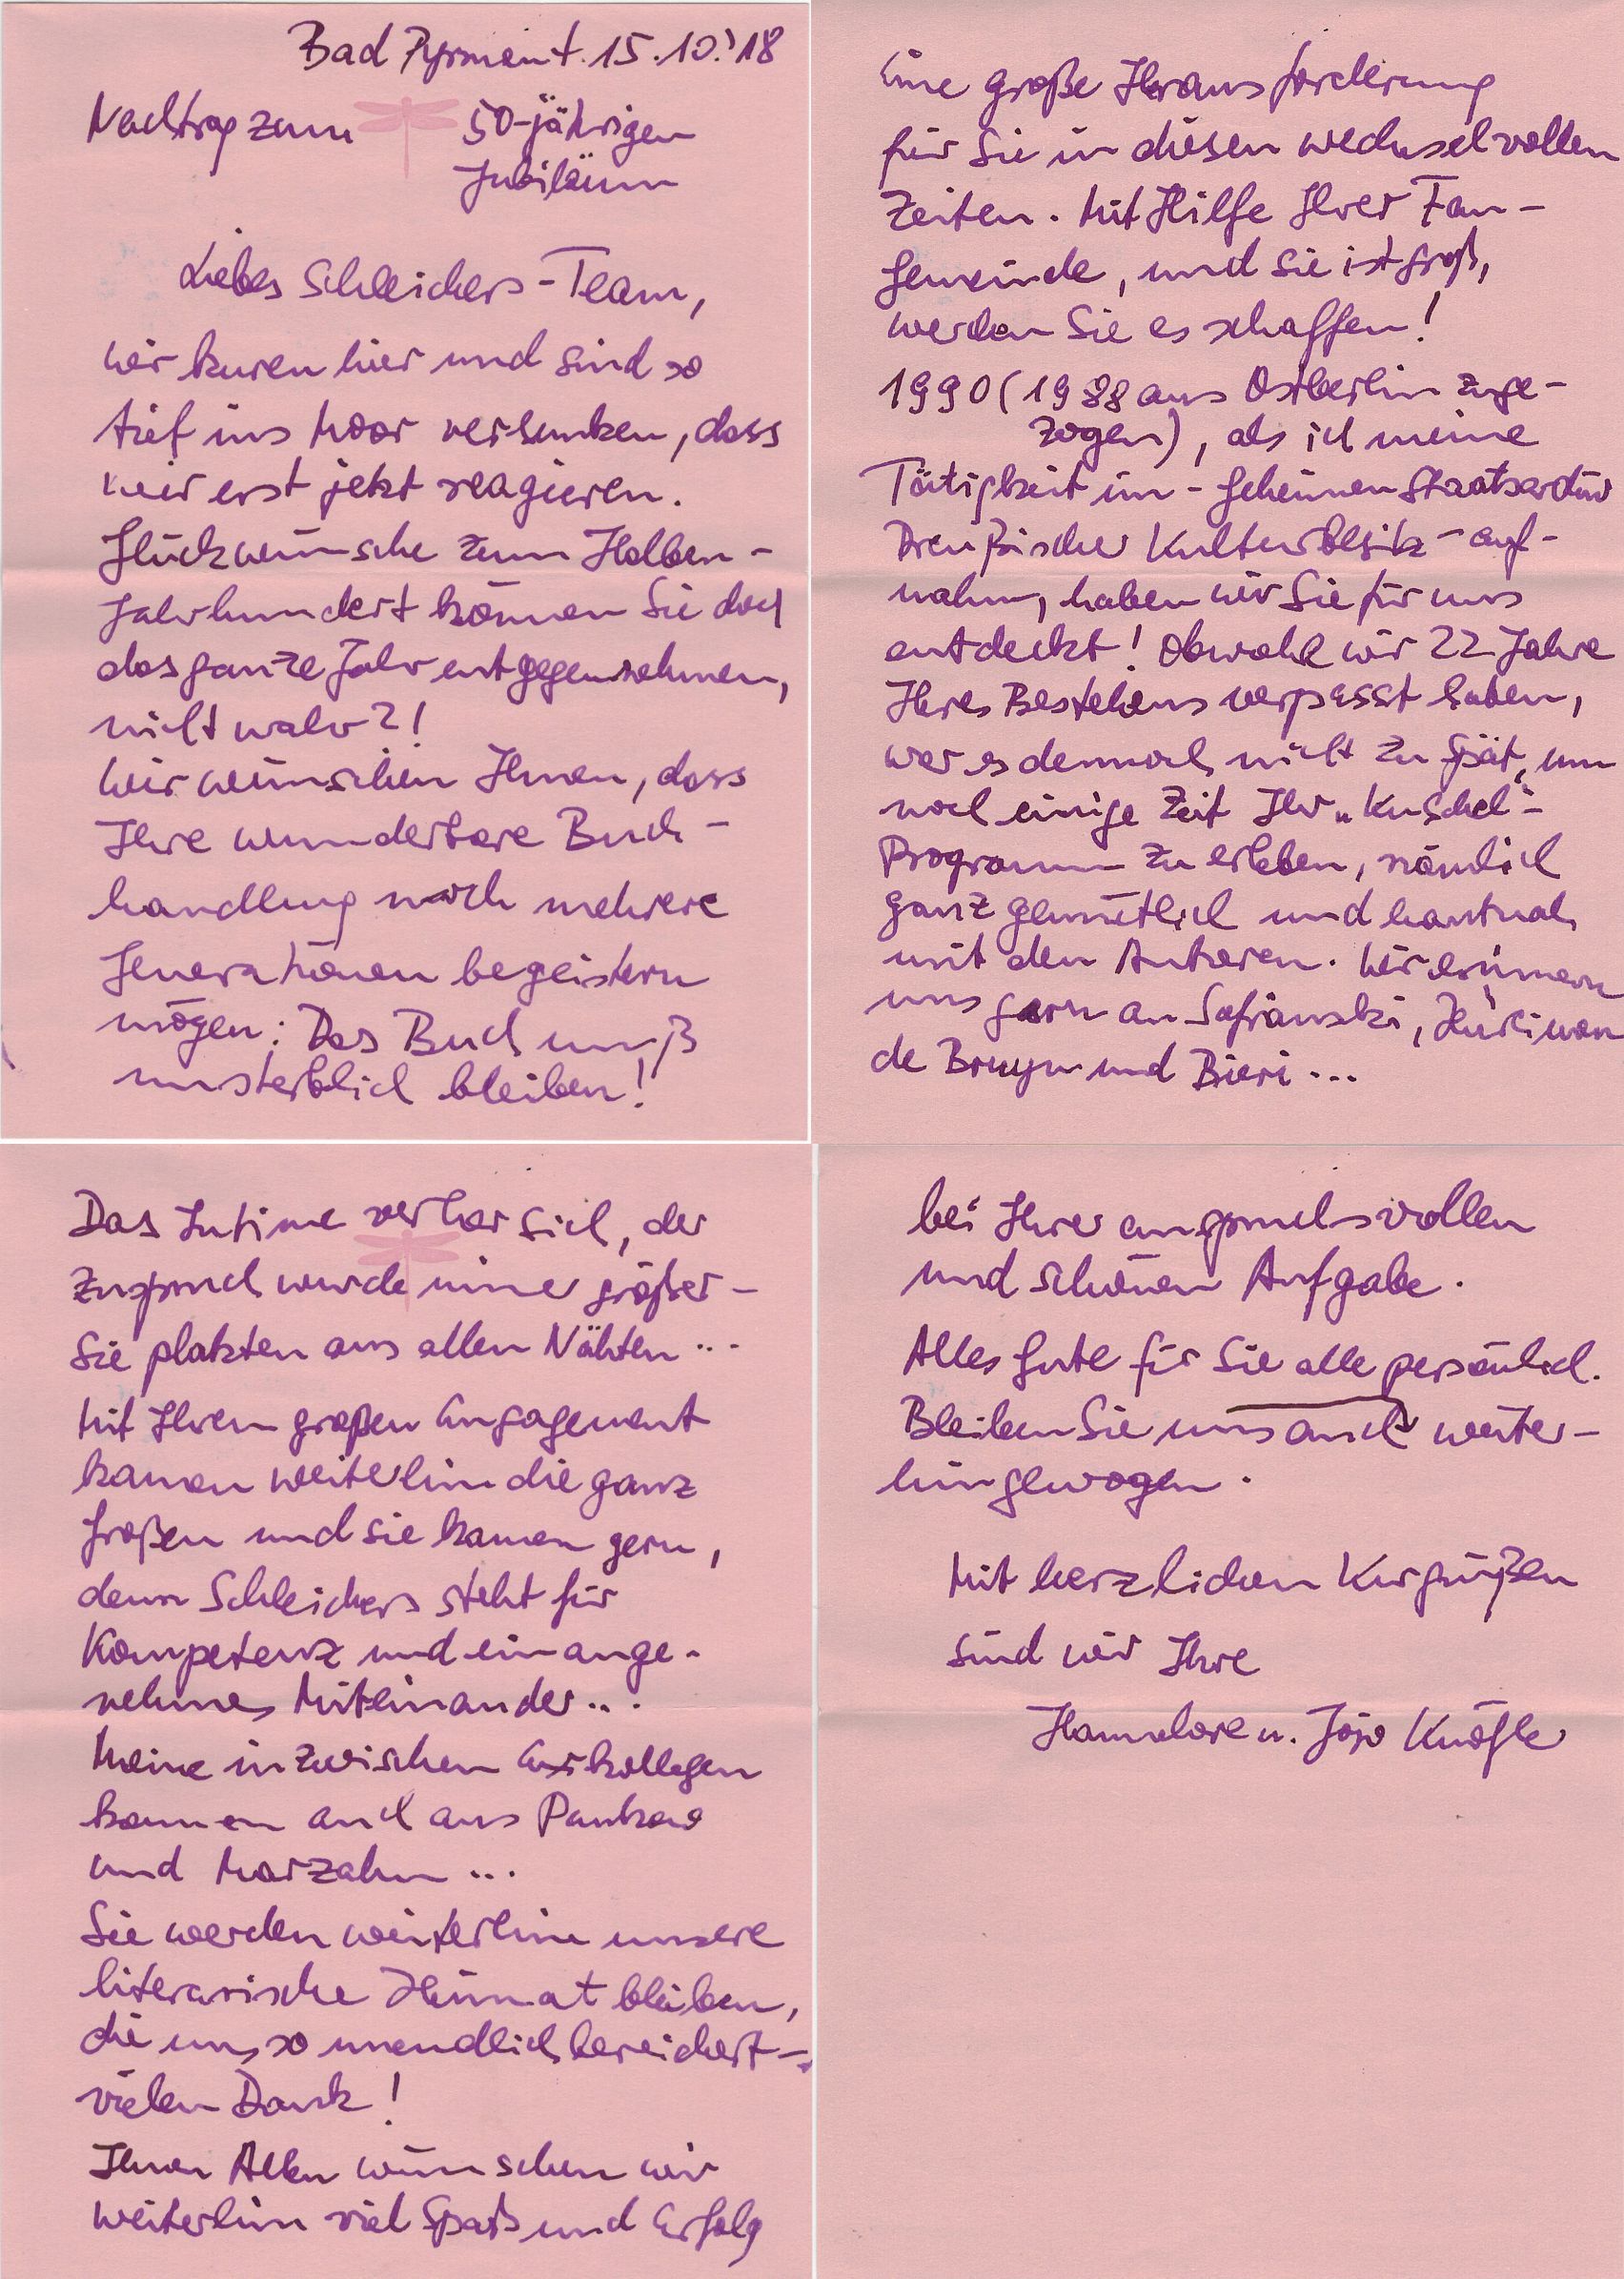 Bad Pyrmont. 15.10.'18
Nachtrag zum 50-jährigen
Jubiläum
Liebes Schleichers-Team,
wir kuren hier und sind so
tief ins Moor versunken, dass
wir erst jetzt reagieren.
Glückwünsche zum Halben-
Jahrhundert können Sie doch
das ganze Jahr entgegennehmen,
nicht wahr?!
Wir wünschen Ihnen, dass
Ihre wunderbare Buch-
handlung noch mehrere
Generationen begeistern
mögen: Das Buch muß
unsterblich bleiben!
Eine große Herausforderung
für Sie in diesen wechselvollen
Zeiten. Mit Hilfe Ihrer Fan-
Gemeinde, und sie ist groß,
werden Sie es schaffen!
1990 (1988 aus Ostberlin zuge-
zogen), als ich meine
Tätigkeit im - Geheimen Staatsarchiv
Preußischer Kulturbesitz - auf-
nahm, haben wir Sie für uns
entdeckt! Obwohl wir 22 Jahre
Ihres Bestehens verpasst haben,
war es dennoch nicht zu spät, um
noch einige Zeit Ihr „Kuschel"-
Programm zu erleben, nämlich
ganz gemütlich und hautnah
mit den Autoren. Wir erinnern
uns gern an Safranski, Hürlimann
de Bruyn und Bieri...
Das Intime verlor sich, der
Zuspruch wurde immer größer -
Sie platzten aus allen Nähten...
Mit Ihrem großen Engagement
kamen weiterhin die ganz
Großen und sie kamen gern,
denn Schleichers steht für
Kompetenz und ein ange-
nehmes Miteinander...
Meine inzwischen Exkollegen
kommen auch aus Pankow
und Marzahn...
Sie werden weiterhin unsere
literarische Heimat bleiben,
die uns so unendlich bereichert -
vielen Dank!
Ihnen Allen wünschen wir
weiterhin viel Spaß und Erfolg
bei Ihrer anspruchsvollen
und schönen Aufgabe.
Alles Gute für Sie alle persönlich.
Bleiben Sie uns auch weiter-
hin gewogen.
Mit herzlichen Kurgrüßen
sind wir Ihre
Hannelore u. Jojo